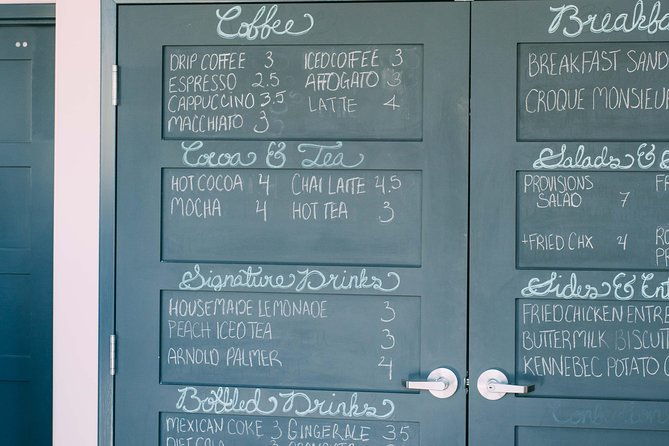 Coffee
DRIP COFFEE 3 ICED COFFEE 3
ESPRESSO 2.5 AFFOGATO 3
CAPPUCCINO 3.5 LATTE 4
MACCHIATO 3
Cocoa & Tea
HOT COCOA 4 CHAI LATTE 4.5
MOCHA 4 HOT TEA 3
Signature Drinks
HOUSEMADE LEMONADE 3
PEACH ICED TEA 3
ARNOLD PALMER 4
Bottled Drinks
MEXICAN COKE 3 GINGERALE 3.5
DIET COLA
Breakfa
BREAKFAST SAND
CROQUE MONSIEUR
Salads & S
PROVISIONS FA
SALAD 7
+FRIED CHX 4 RO
PR
Sides & Ent
FRIED CHICKEN ENTRE
BUTTERMILK BISCUIT
KENNEBEC POTATO C